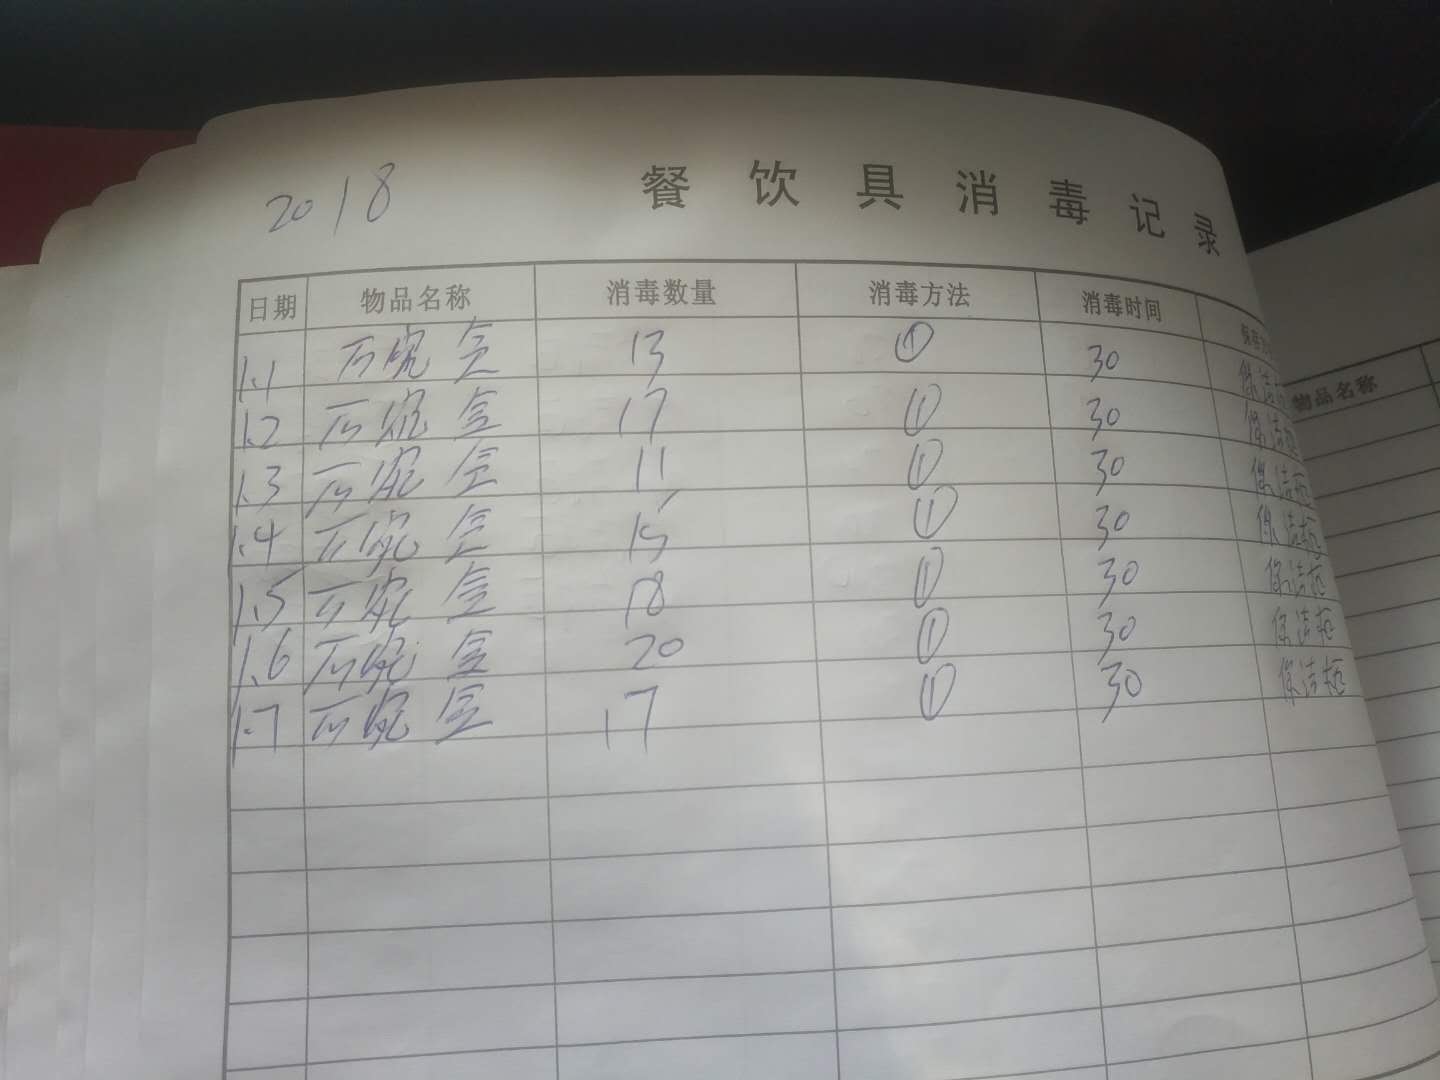 2018 餐饮具消毒记录
日期 物品名称 消毒数量 消毒方法 消毒时间
1.1 石碗 13 ① 30 保洁
1.2 石碗 17 ① 30 保洁柜
1.3 石碗 11 ① 30 保洁柜
1.4 石碗 15 ① 30 保洁柜
1.5 石碗 18 ① 30 保洁柜
1.6 石碗 20 ① 30 保洁柜
1.7 石碗 17 ① 30 保洁柜
物品名称